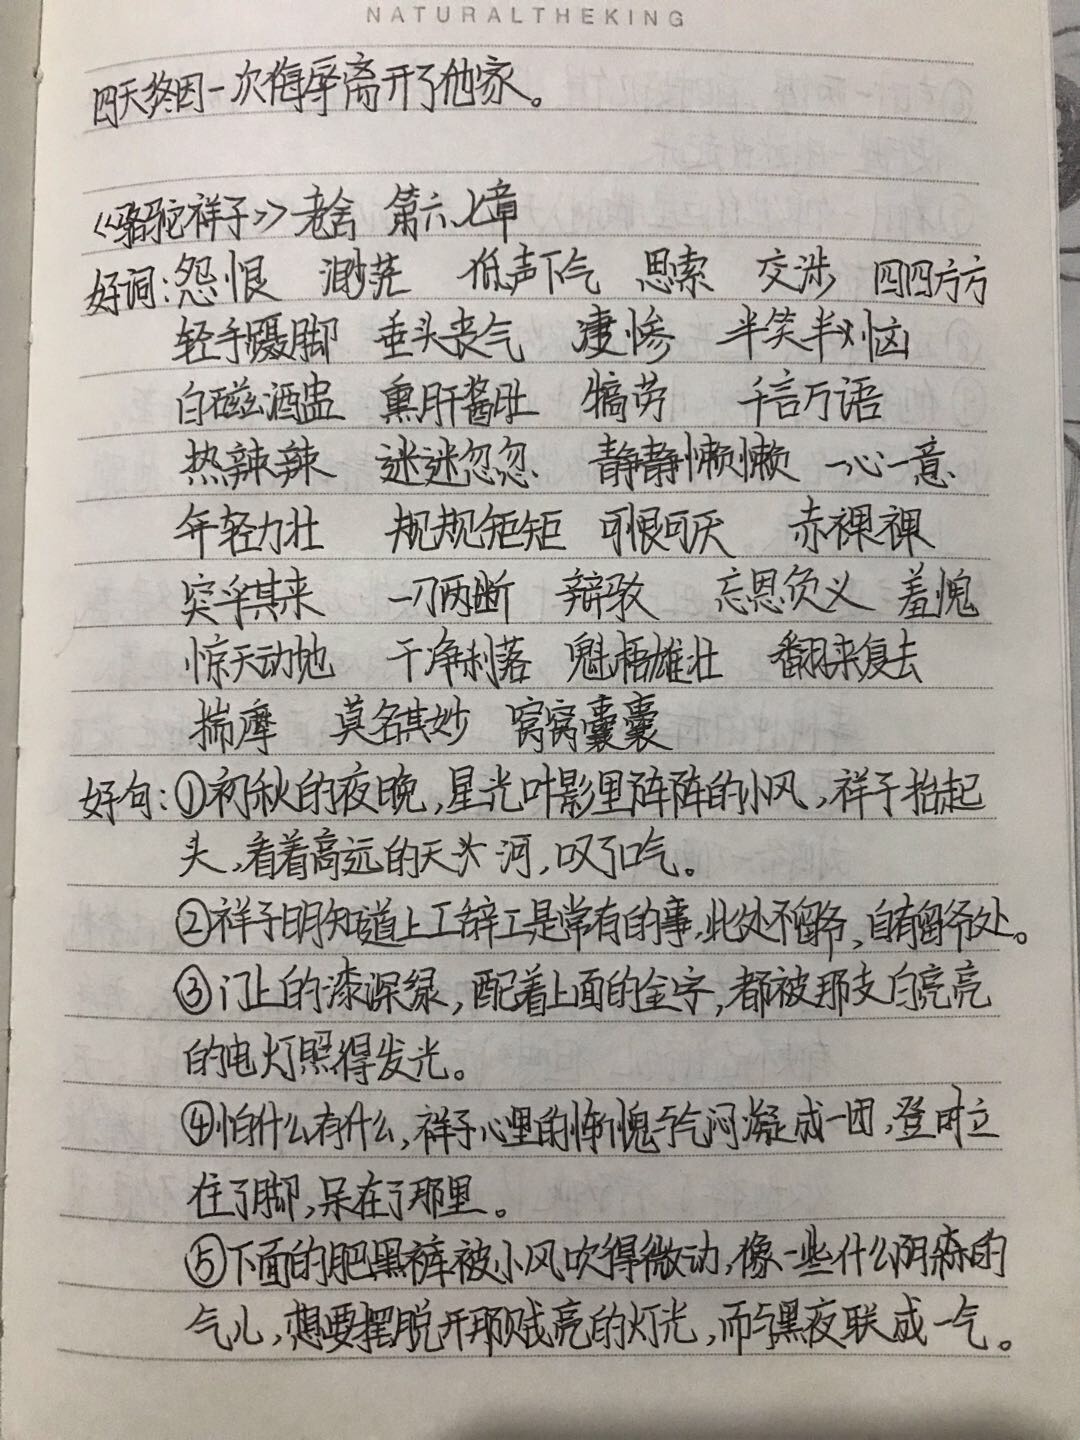 NATURALTHEKING
四天终因一次侮辱离开了他家。
《骆驼祥子》老舍 第六、七章
好词:怨恨 渺茫 低声下气 思索 交涉 四四方方
轻手蹑脚 垂头丧气 凄惨 半笑半恼
白磁酒盅 熏肝酱肚 犒劳 千言万语
热辣辣 迷迷忽忽 静静懒懒 一心一意
年轻力壮 规规矩矩 可恨可厌 赤裸裸
突乎其来 一刀两断 辩驳 忘恩负义 羞愧
惊天动地 干净利落 魁梧雄壮 翻来复去
揣摩 莫名其妙 窝窝囊囊
好句:①初秋的夜晚,星光叶影里阵阵的小风,祥子抬起
头,看着高远的天头河,叹了口气。
②祥子明知道上工辞工是常有的事,此处不留爷,自有留爷处。
③门上的漆深绿,配着上面的金字,都被那支白亮亮
的电灯照得发光。
④怕什么有什么,祥子心里的惭愧与气闷凝成一团,登时立
住了脚,呆在了那里。
⑤下面的肥黑裤被小风吹得微动,像一些什么阴森的
气儿,想要摆脱开那贼亮的灯光,而与黑夜联成一气。